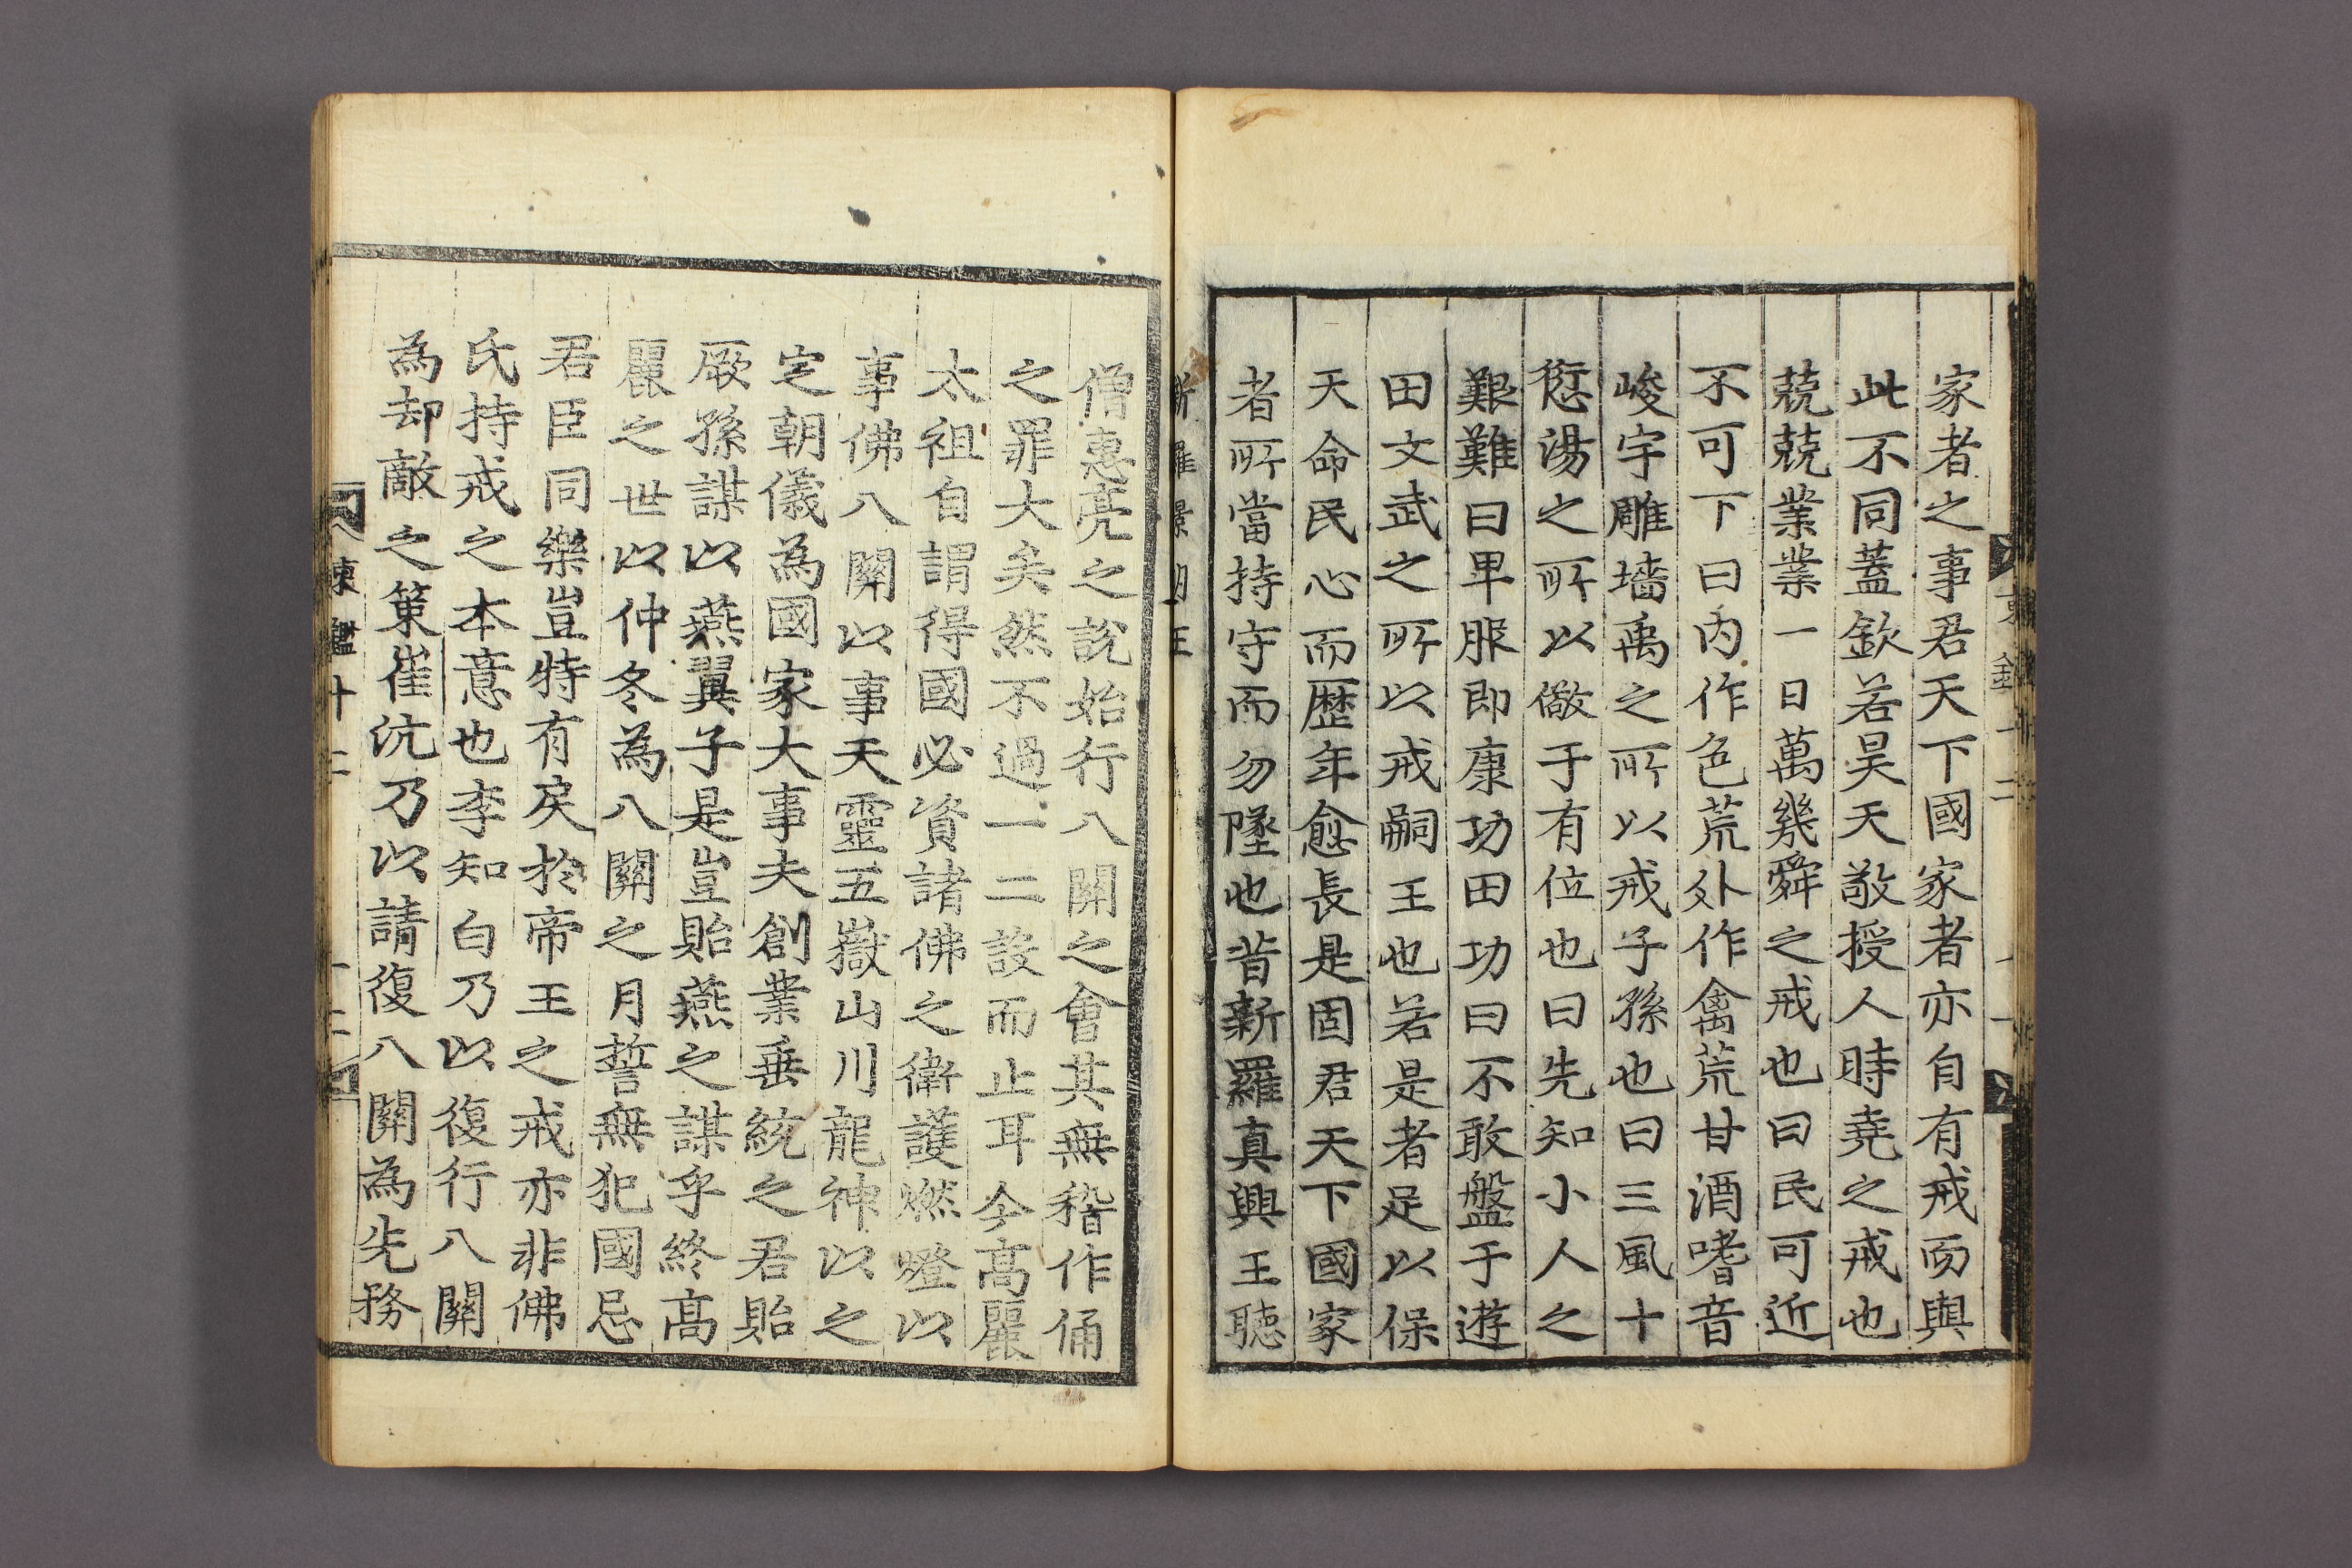 家者之事君天下國家者亦自有戒而與
此不同蓋欽若昊天敬授人時堯之戒也
兢兢業業一日萬幾舜之戒也曰民可近
不可下曰內作色荒外作禽荒甘酒嗜音
峻宇雕墻禹之所以戒子孫也曰三風十
愆湯之所以儆于有位也曰先知小人之
艱難曰卑服即康功田功曰不敢盤于遊
田文武之所以戒嗣王也若是者足以保
天命民心而歷年愈長是固君天下國家
者所當持守而勿墜也昔新羅真興王聽
僧惠亮之說始行八關之會其無稽作俑
之罪大矣然不過一二設而止耳今高麗
太祖自謂得國必資諸佛之衛護燃燈以
事佛八關以事天靈五嶽山川龍神以之
定朝儀為國家大事夫創業垂統之君貽
厥孫謀以燕翼子是豈貽燕之謀乎終高
麗之世以仲冬為八關之月誓無犯國忌
君臣同樂豈特有戾於帝王之戒亦非佛
氏持戒之本意也李知白乃以復行八關
為却敵之策崔沆乃以請復八關為先務
東鑑十二